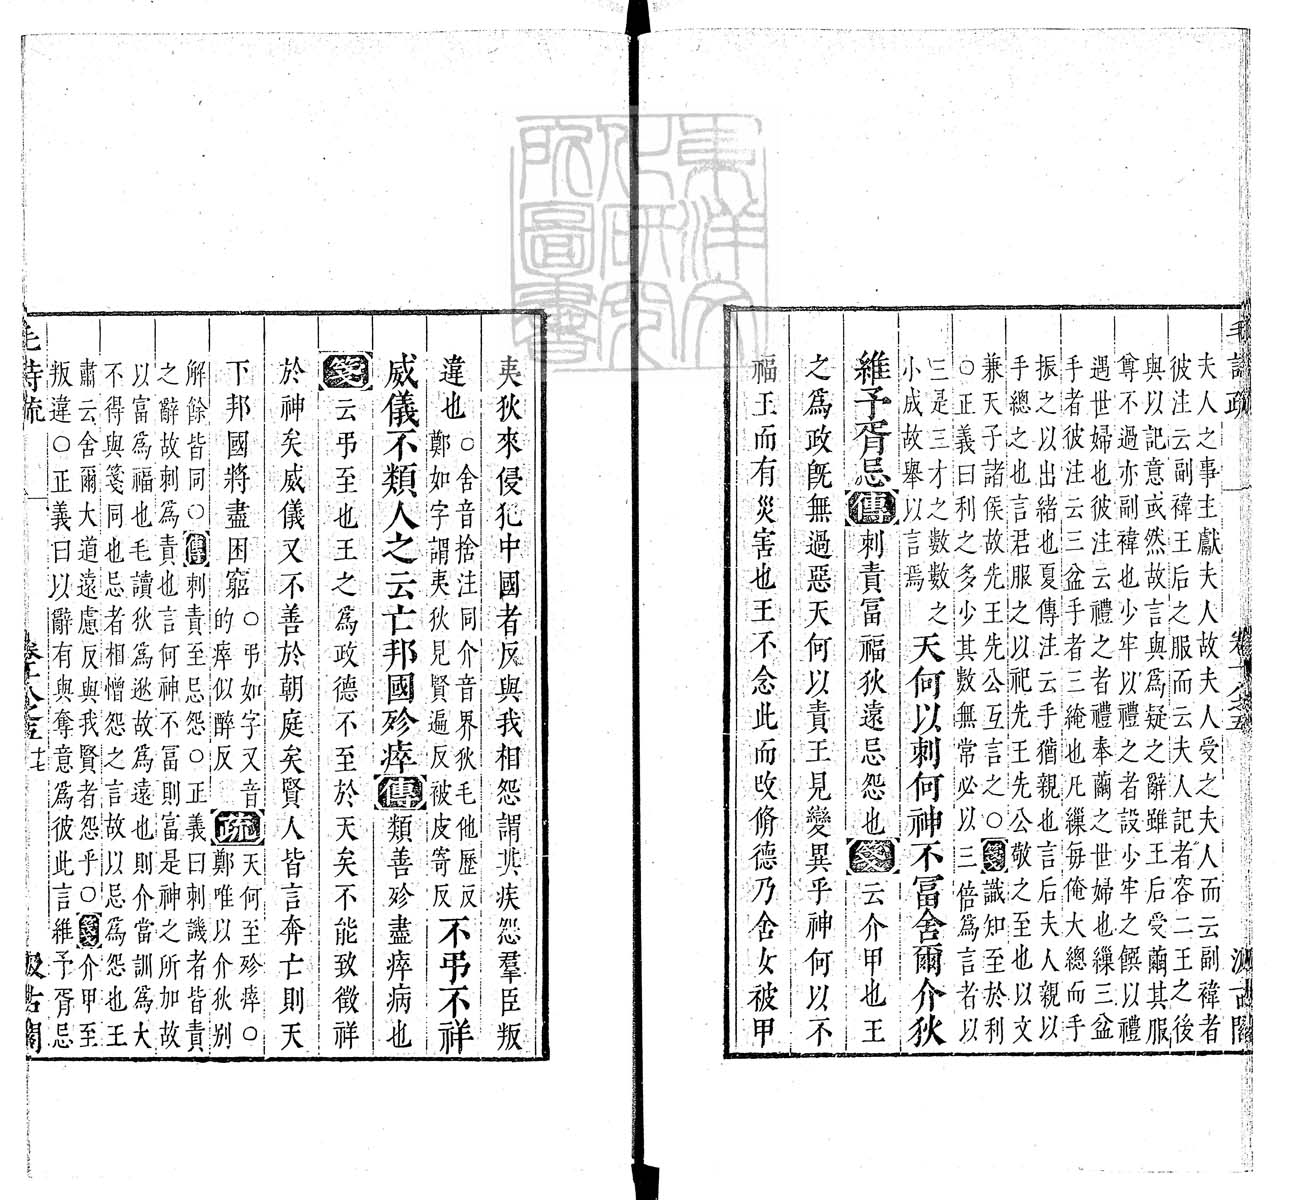 夫人之事主獻夫人故夫人受之夫人而云副褘者
彼注云副褘王后之服而云夫人記者容二王之後
與以記意或然故言與為疑之辭雖王后受繭其服
尊不過亦副褘也少牢以禮之者設少牢之饌以禮
遇世婦也彼注云禮之者禮奉繭之世婦也繅三盆
手者彼注云三盆手者三淹也凡繅每俺大總而手
振之以出緒也夏傳注云手猶親也言后夫人親以
手總之也言君服之以祀先王先公敬之至也以文
兼天子諸侯故先王先公互言之○箋識知至於利
○正義曰利之多少其數無常必以三倍為言者以
三是三才之數數之
小成故舉以言焉
天何以刺何神不冨舍爾介狄
維予胥忌傳刺責冨福狄遠忌怨也箋云介甲也王
之為政旣無過惡天何以責王見變異乎神何以不
福王而有災害也王不念此而改脩德乃舍女被甲
夷狄來侵犯中國者反與我相怨謂其疾怨羣臣叛
違也
○舍音捨注同介音界狄毛他歷反
鄭如字謂夷狄見賢遍反被皮寄反
不弔不祥
威儀不類人之云亡邦國殄瘁傳類善殄盡瘁病也
箋云弔至也王之為政德不至於天矣不能致徵祥
於神矣威儀又不善於朝庭矣賢人皆言奔亡則天
下邦國將盡困窮
○弔如字又音
的瘁似醉反
疏
天何至殄瘁○
鄭唯以介狄别
解餘皆同○傳刺責至忌怨○正義曰刺譏者皆責
之辭故刺為責也言何神不冨則富是神之所加故
以富為福也毛讀狄為逖故為遠也則介當訓為大
不得與箋同也忌者相憎怨之言故以忌為怨也王
肅云舍爾大道遠慮反與我賢者怨乎○箋介甲至
叛違○正義曰以辭有與奪意為彼此言維予胥忌
毛詩疏
卷十八之五
十七
汲古閣